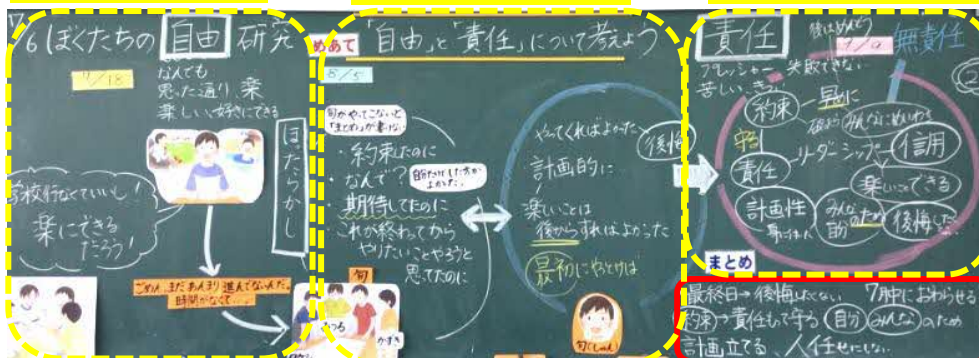 7/6 ぼくたちの 自由 研究
7/18
なんでも
思った通り、楽
楽しい、好きにできる
学校行なくていいし!
楽にできる
だろう!
ほったらかし
ごめん、まだあんまり進んでないんだ。
時間がなくて…
めあて 「自由」と「責任」について考えよう
8/5
旬がやってこないと
「まとめ」が書けない
・約束したのに
・なんで?
・期待してたのに
・これが終わってから
やりたいことやろうと
思ってたのに
旬
みつる
かずき
やってくればよかった
後悔
計画的に
楽しいことは
後からすればよかった
最初にやっとけば
旬(しゅん)
責任
無責任
プレッシャー 失敗できない
苦しい
約束
早めに
破ると みんなにめいわく
守る
責任
リーダーシップ
信用
計画性
楽しいことできる
みんな
自分
のため
後悔しない
まとめ
最終日→後悔したくない 7月中におわらせる
約束→責任もって守る 自分 みんな のため
計画立てる、人任せにしない